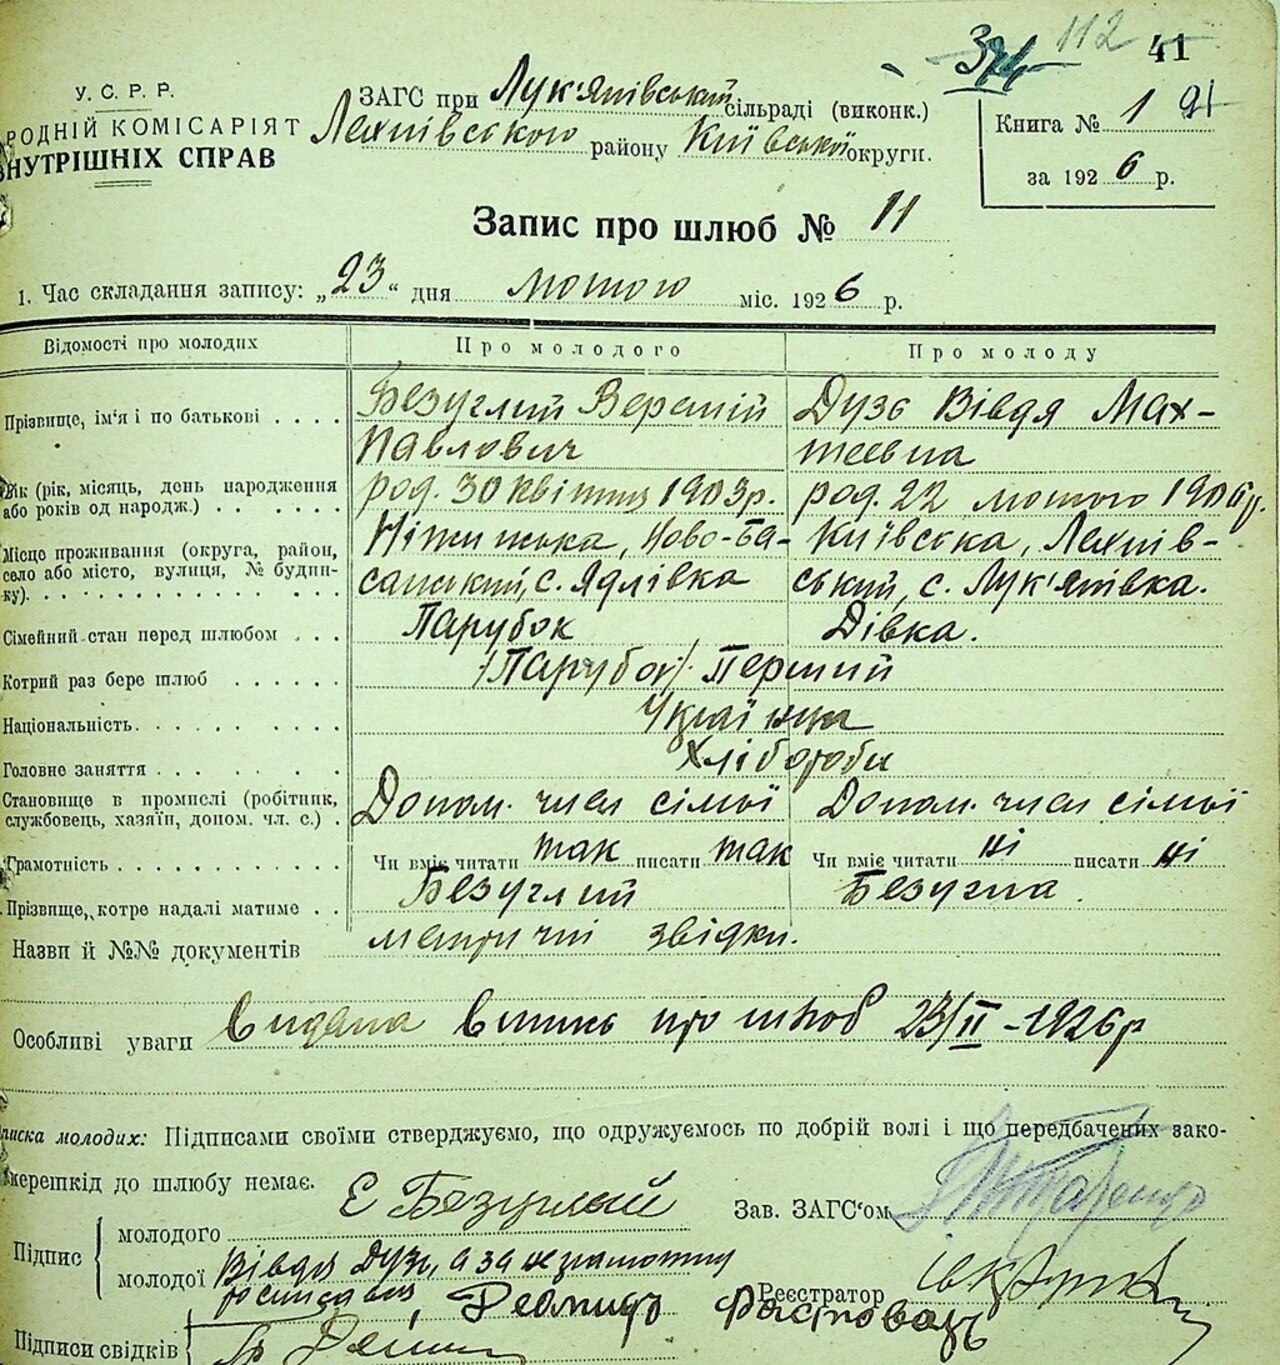 112 41
У. С. Р. Р.
РОДНІЙ КОМІСАРІЯТ
ВНУТРІШНІХ СПРАВ
ЗАГС при Лук'янівській сільраді (виконк.)
Лехнівського району Київської округи.
Книга № 1 91
за 1926 р.
Запис про шлюб № 11
1. Час складання запису: „23“ дня лютого міс. 1926 р.
Відомості про молодих Про молодого Про молоду
Прізвище, ім'я і по батькові . . . . Безуглий Веремій Дузь Вівдя Мах-
Павлович теевна
Вік (рік, місяць, день народження род. 30 квітня 1903 р. род. 22 лютого 1906 р.
або років од народж.) . . . . . .
Місце проживання (округа, район, Ніжинська, Ново-Ба- Київська, Лехнів-
село або місто, вулиця, № будин- санський, с. Ядлівка ський, с. Лук'янівка.
ку). . . . . . . . . . . . . . .
Сімейний стан перед шлюбом . . . Парубок Дівка.
Котрий раз бере шлюб . . . . . . /Парубок/. Перший
Національність. . . . . . . . . . Українці
Головне заняття . . . . . . . . Хлібороби
Становище в промислі (робітник, Допом. член сімьї Допом. член сімьї
службовець, хазяїн, допом. чл. с.) .
Грамотність . . . . . . . . . . . Чи вміє читати так писати так Чи вміє читати ні писати ні
Прізвище, котре надалі матиме . . Безуглий Безугла.
Назви й №№ документів метричні звідки.
Особливі уваги Видана випись про шлюб 23/II – 1926 р
писка молодих: Підписами своїми стверджуємо, що одружуємось по добрій волі і що передбачених зако-
перешкід до шлюбу немає.
Підпис молодого Е Безуглый Зав. ЗАГС‘ом
молодої Вівдя Дузь, а за неграмотну
росписався, Реєстратор
Підписи свідків